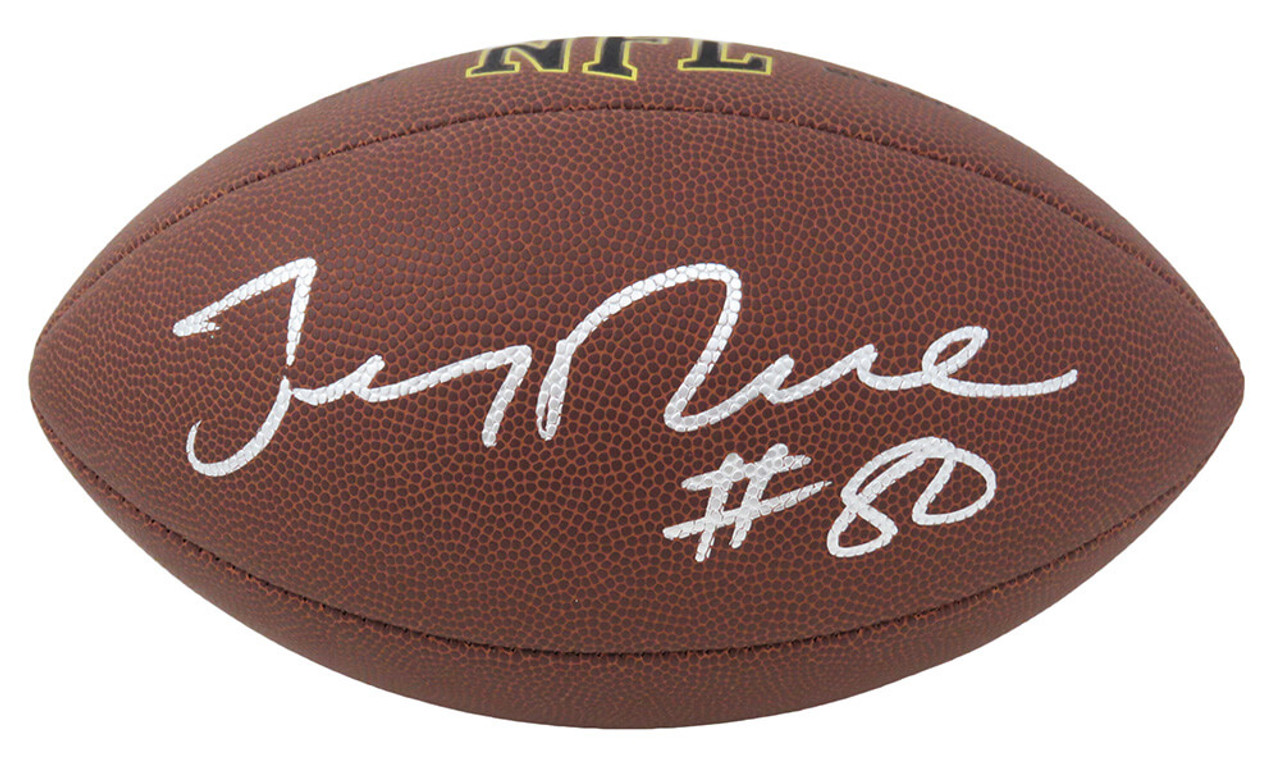 NFL
Jerry Rice
#80